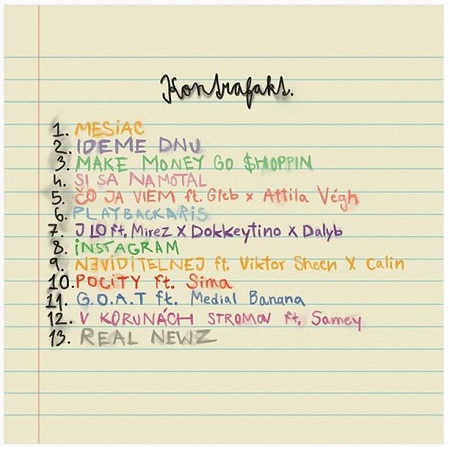 Kontrafakt.
1. MESIAC
2. IDEME DNU
3. MAKE MONEY GO $HOPPIN
4. SI SA NAMOTAL
5. ČO JA VIEM ft. Gleb x Attila Végh
6. PLAYBACKARiS
7. J LO ft. Mirez X Dokkeytino x Dalyb
8. iNSTAGRAM
9. N3ViDiTELNEJ ft. Viktor Sheen X Calin
10. POCiTY ft. Sima
11. G.O.A.T ft. Medial Banana
12. V KORUNÁCH STROMOV ft. Samey
13. REAL NEWZ